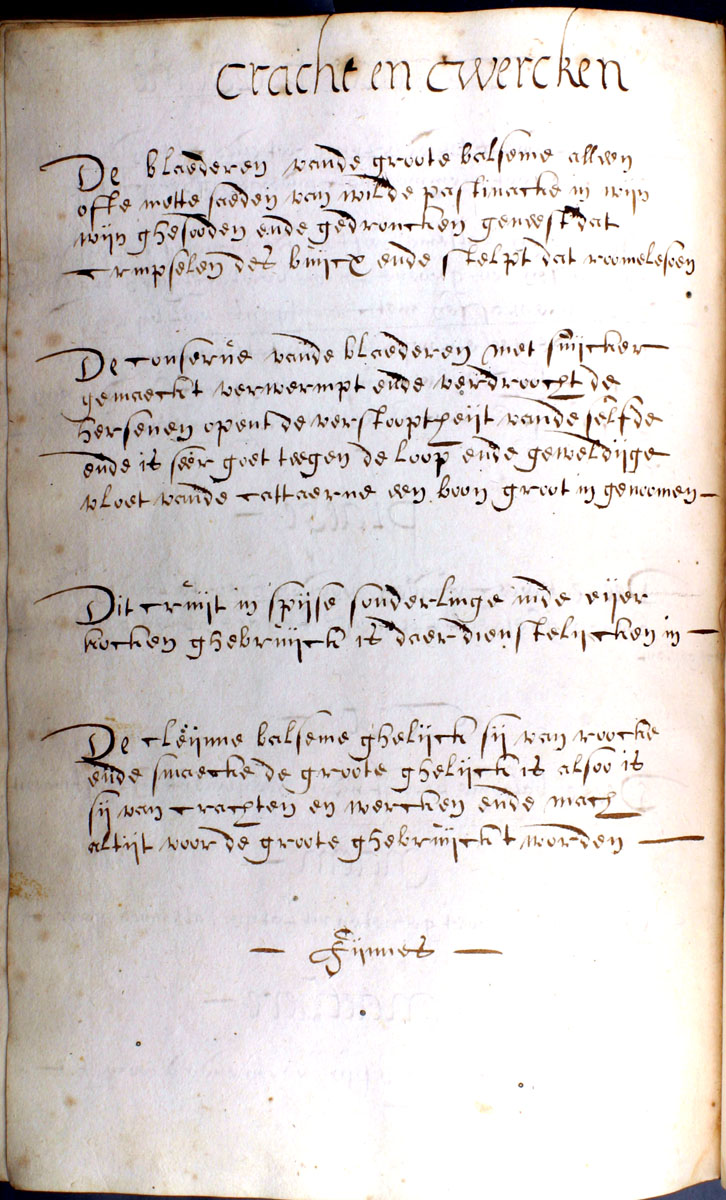 Cracht en Cwercken
De blaederen vande groote balseme alleen
ofte mette saeden van wilde pastinacke in wijn
wijn ghesooden ende gedroncken geneest dat
crimpselen des buijcx ende stelpt dat roomelesoen
De conserve vande blaederen met suijcker
gemaeckt verwermpt ende verdroocht de
hersenen opent de verstooptheijt vande selfde
ende is seer goet teegen de loop ende geweldijge
vloet vande cattaerne een boon groot in genoomen
Dit cruijt in spijse sonderlinge inde eijer
kocken ghebruijck is daer dienstelijcken in
De cleijnne balseme ghelijck sij van roocke
ende smaecke de groote ghelijck is alsoo is
sij van crachten en wercken ende mach
altijt voor de groote ghebruijckt worden
Fijnnes